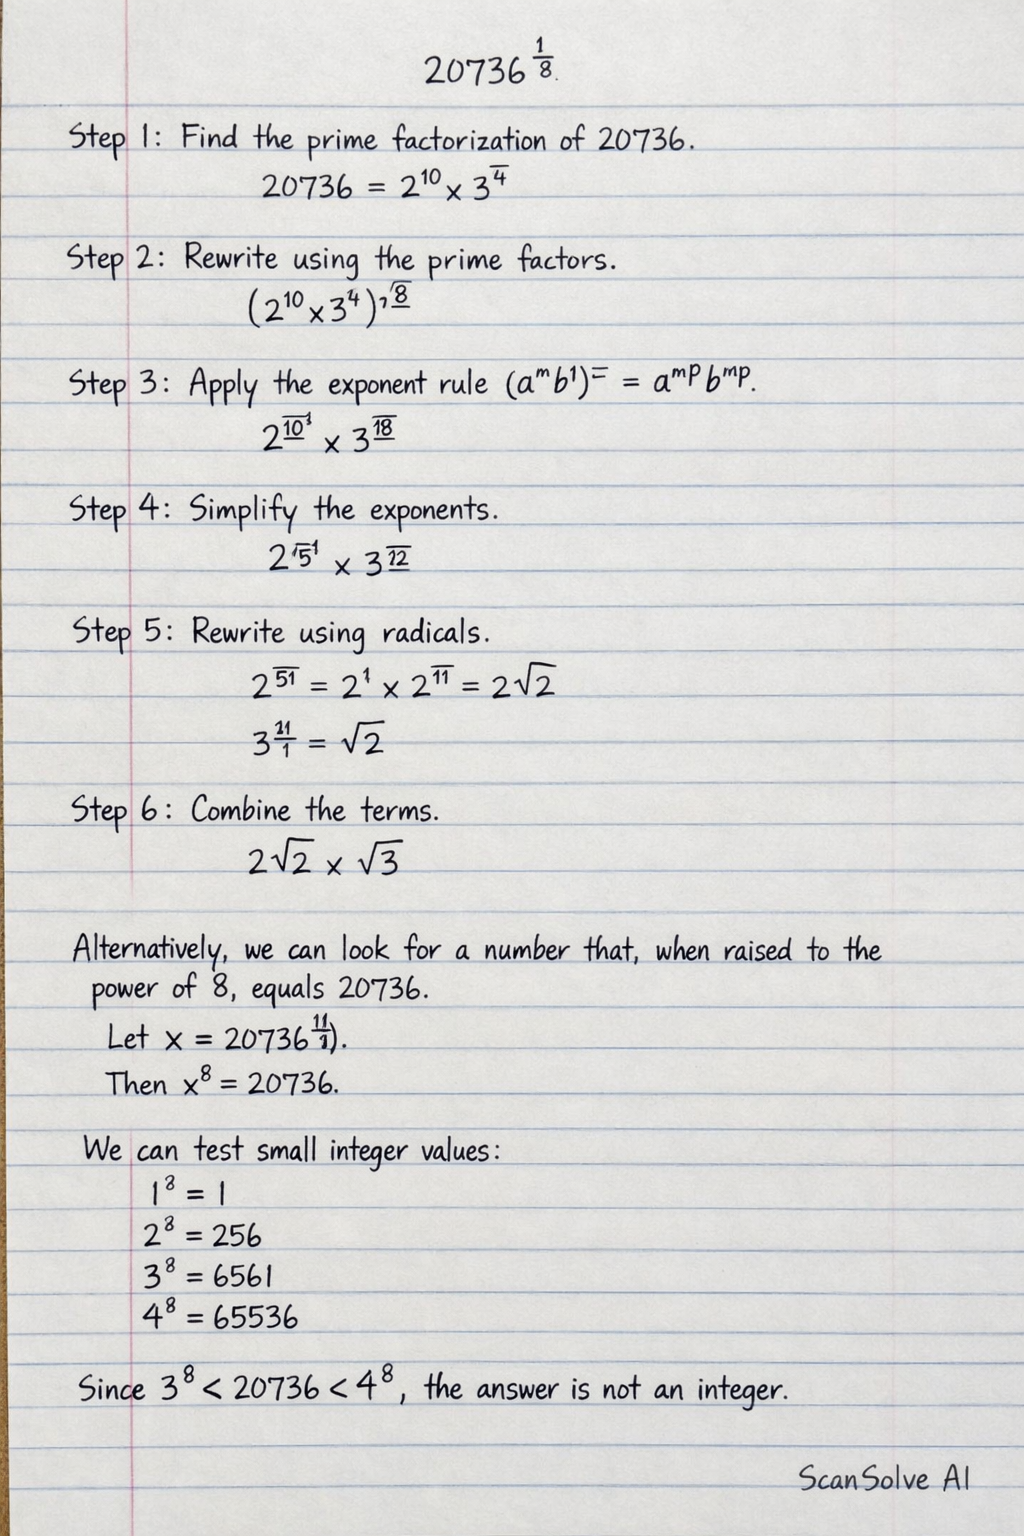 20736^(1/8).
Step 1: Find the prime factorization of 20736.
20736 = 2^10 x 3^4
Step 2: Rewrite using the prime factors.
(2^10 x 3^4)^,8
Step 3: Apply the exponent rule (a^m b^1)^= = a^mp b^mp.
2^10^1 x 3^18
Step 4: Simplify the exponents.
2^5^1 x 3^12
Step 5: Rewrite using radicals.
2^51 = 2^1 x 2^11 = 2√2
3^(21/1) = √2
Step 6: Combine the terms.
2√2 x √3
Alternatively, we can look for a number that, when raised to the
power of 8, equals 20736.
Let x = 20736^(11/1)).
Then x^8 = 20736.
We can test small integer values:
1^8 = 1
2^8 = 256
3^8 = 6561
4^8 = 65536
Since 3^8 < 20736 < 4^8, the answer is not an integer.
ScanSolve AI